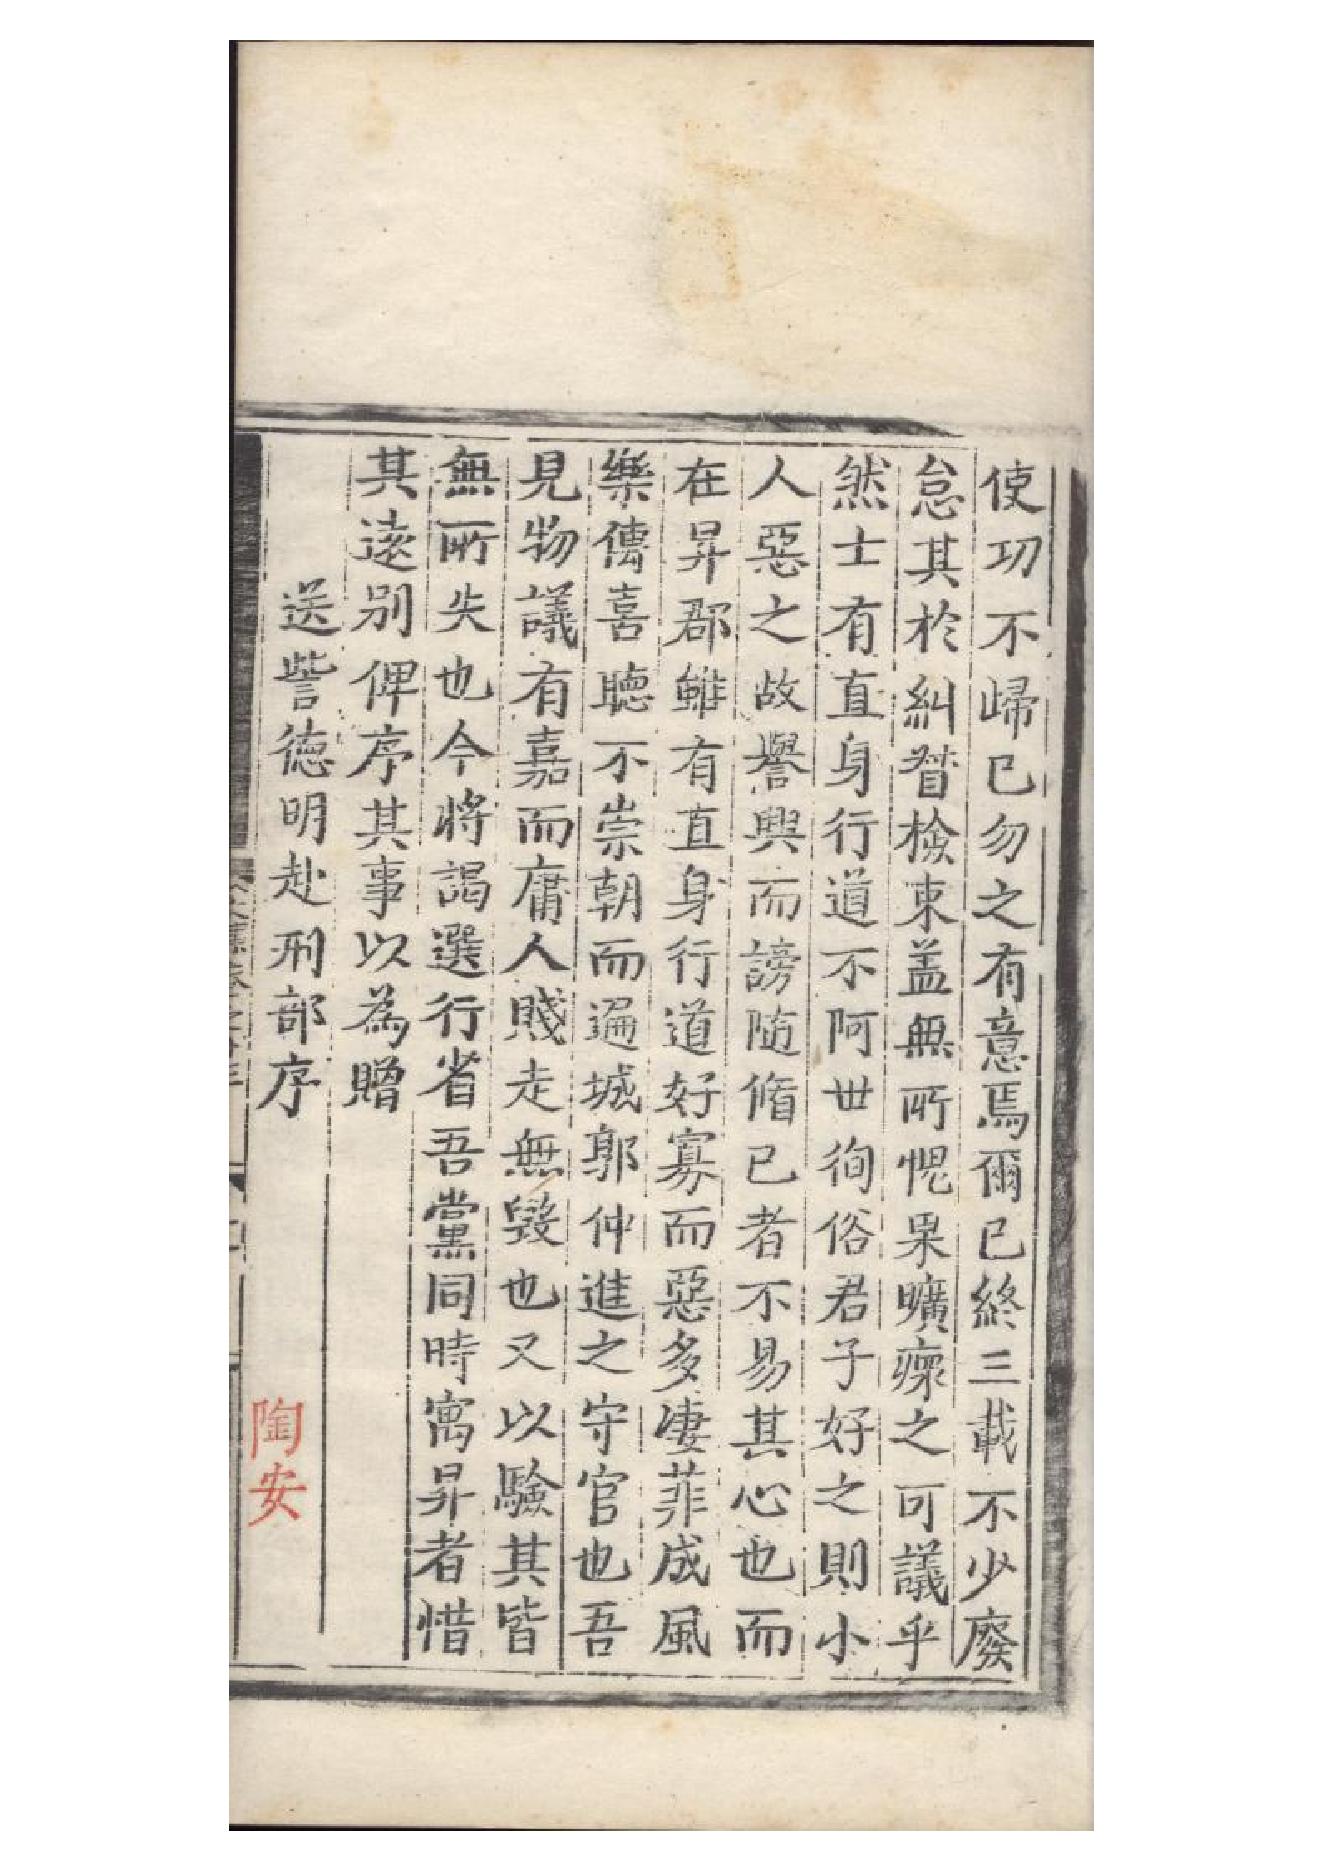 使功不歸已勿之有意焉爾已終三載不少廢
怠其於糾督檢束盖無所愧果曠瘝之可議乎
然士有直身行道不阿世徇俗君子好之則小
人惡之故譽興而謗随脩已者不易其心也而
在昇郡雖有直身行道好寡而惡多凄菲成風
樂傳喜聽不崇朝而遍城郭仲進之守官也吾
見物議有嘉而庸人賤走無毀也又以驗其皆
無所失也今將謁選行省吾黨同時寓昇者惜
其遠别俾序其事以為贈
送訾德明赴刑部序
陶安